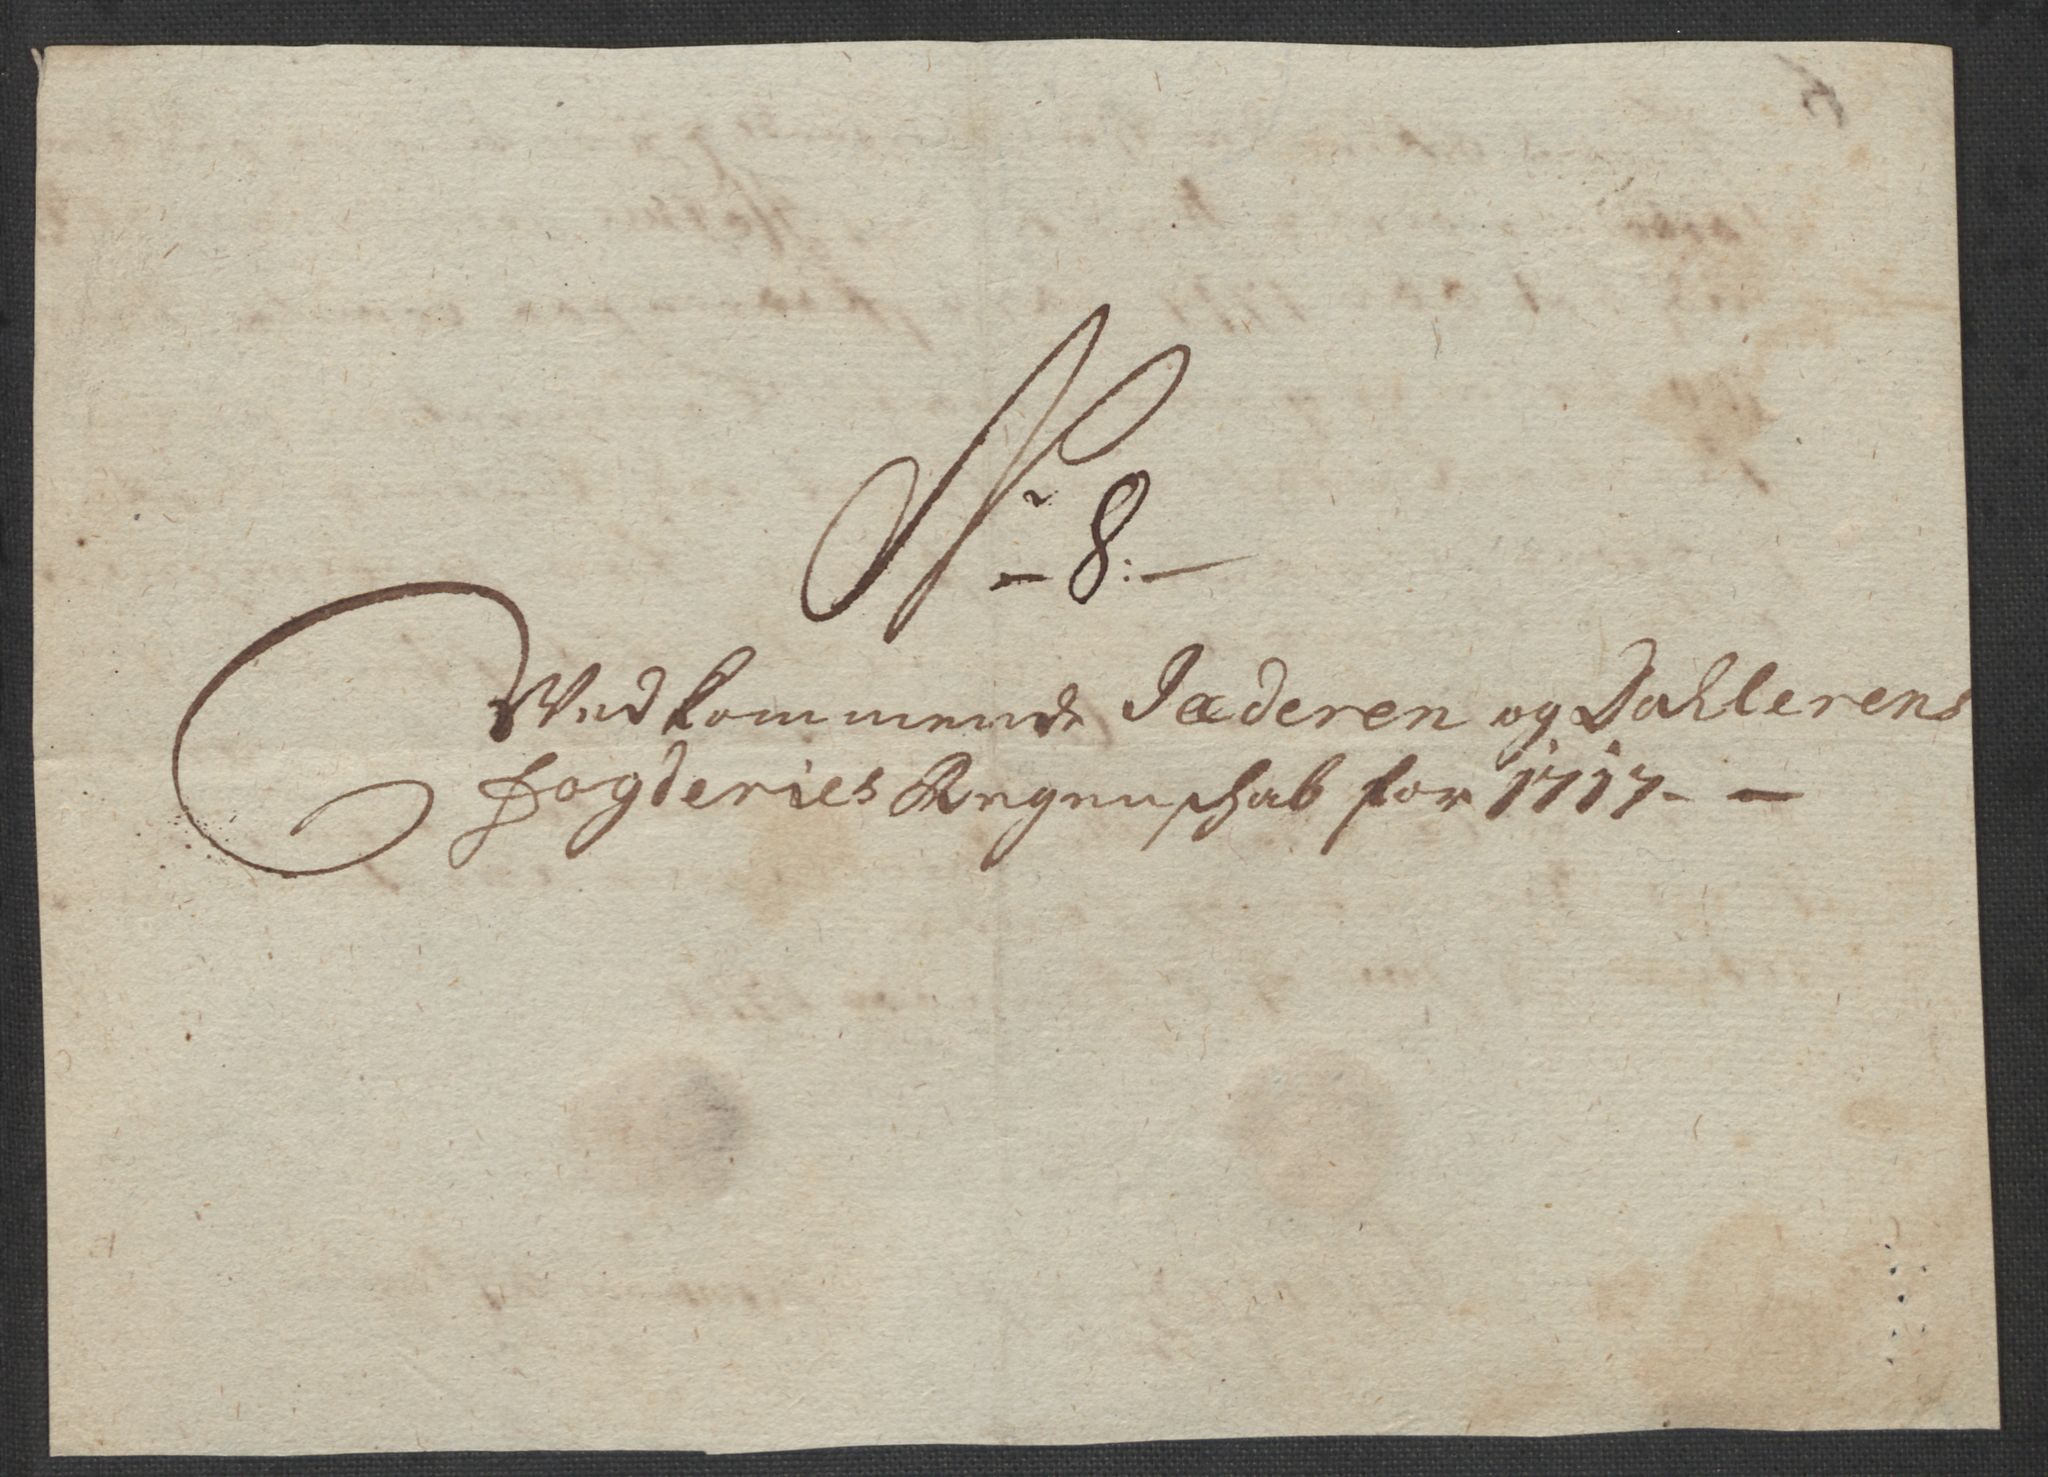 No 8:
Vedkommende Jæderen og Dahlerens
Fogderies Regenskab for 1717